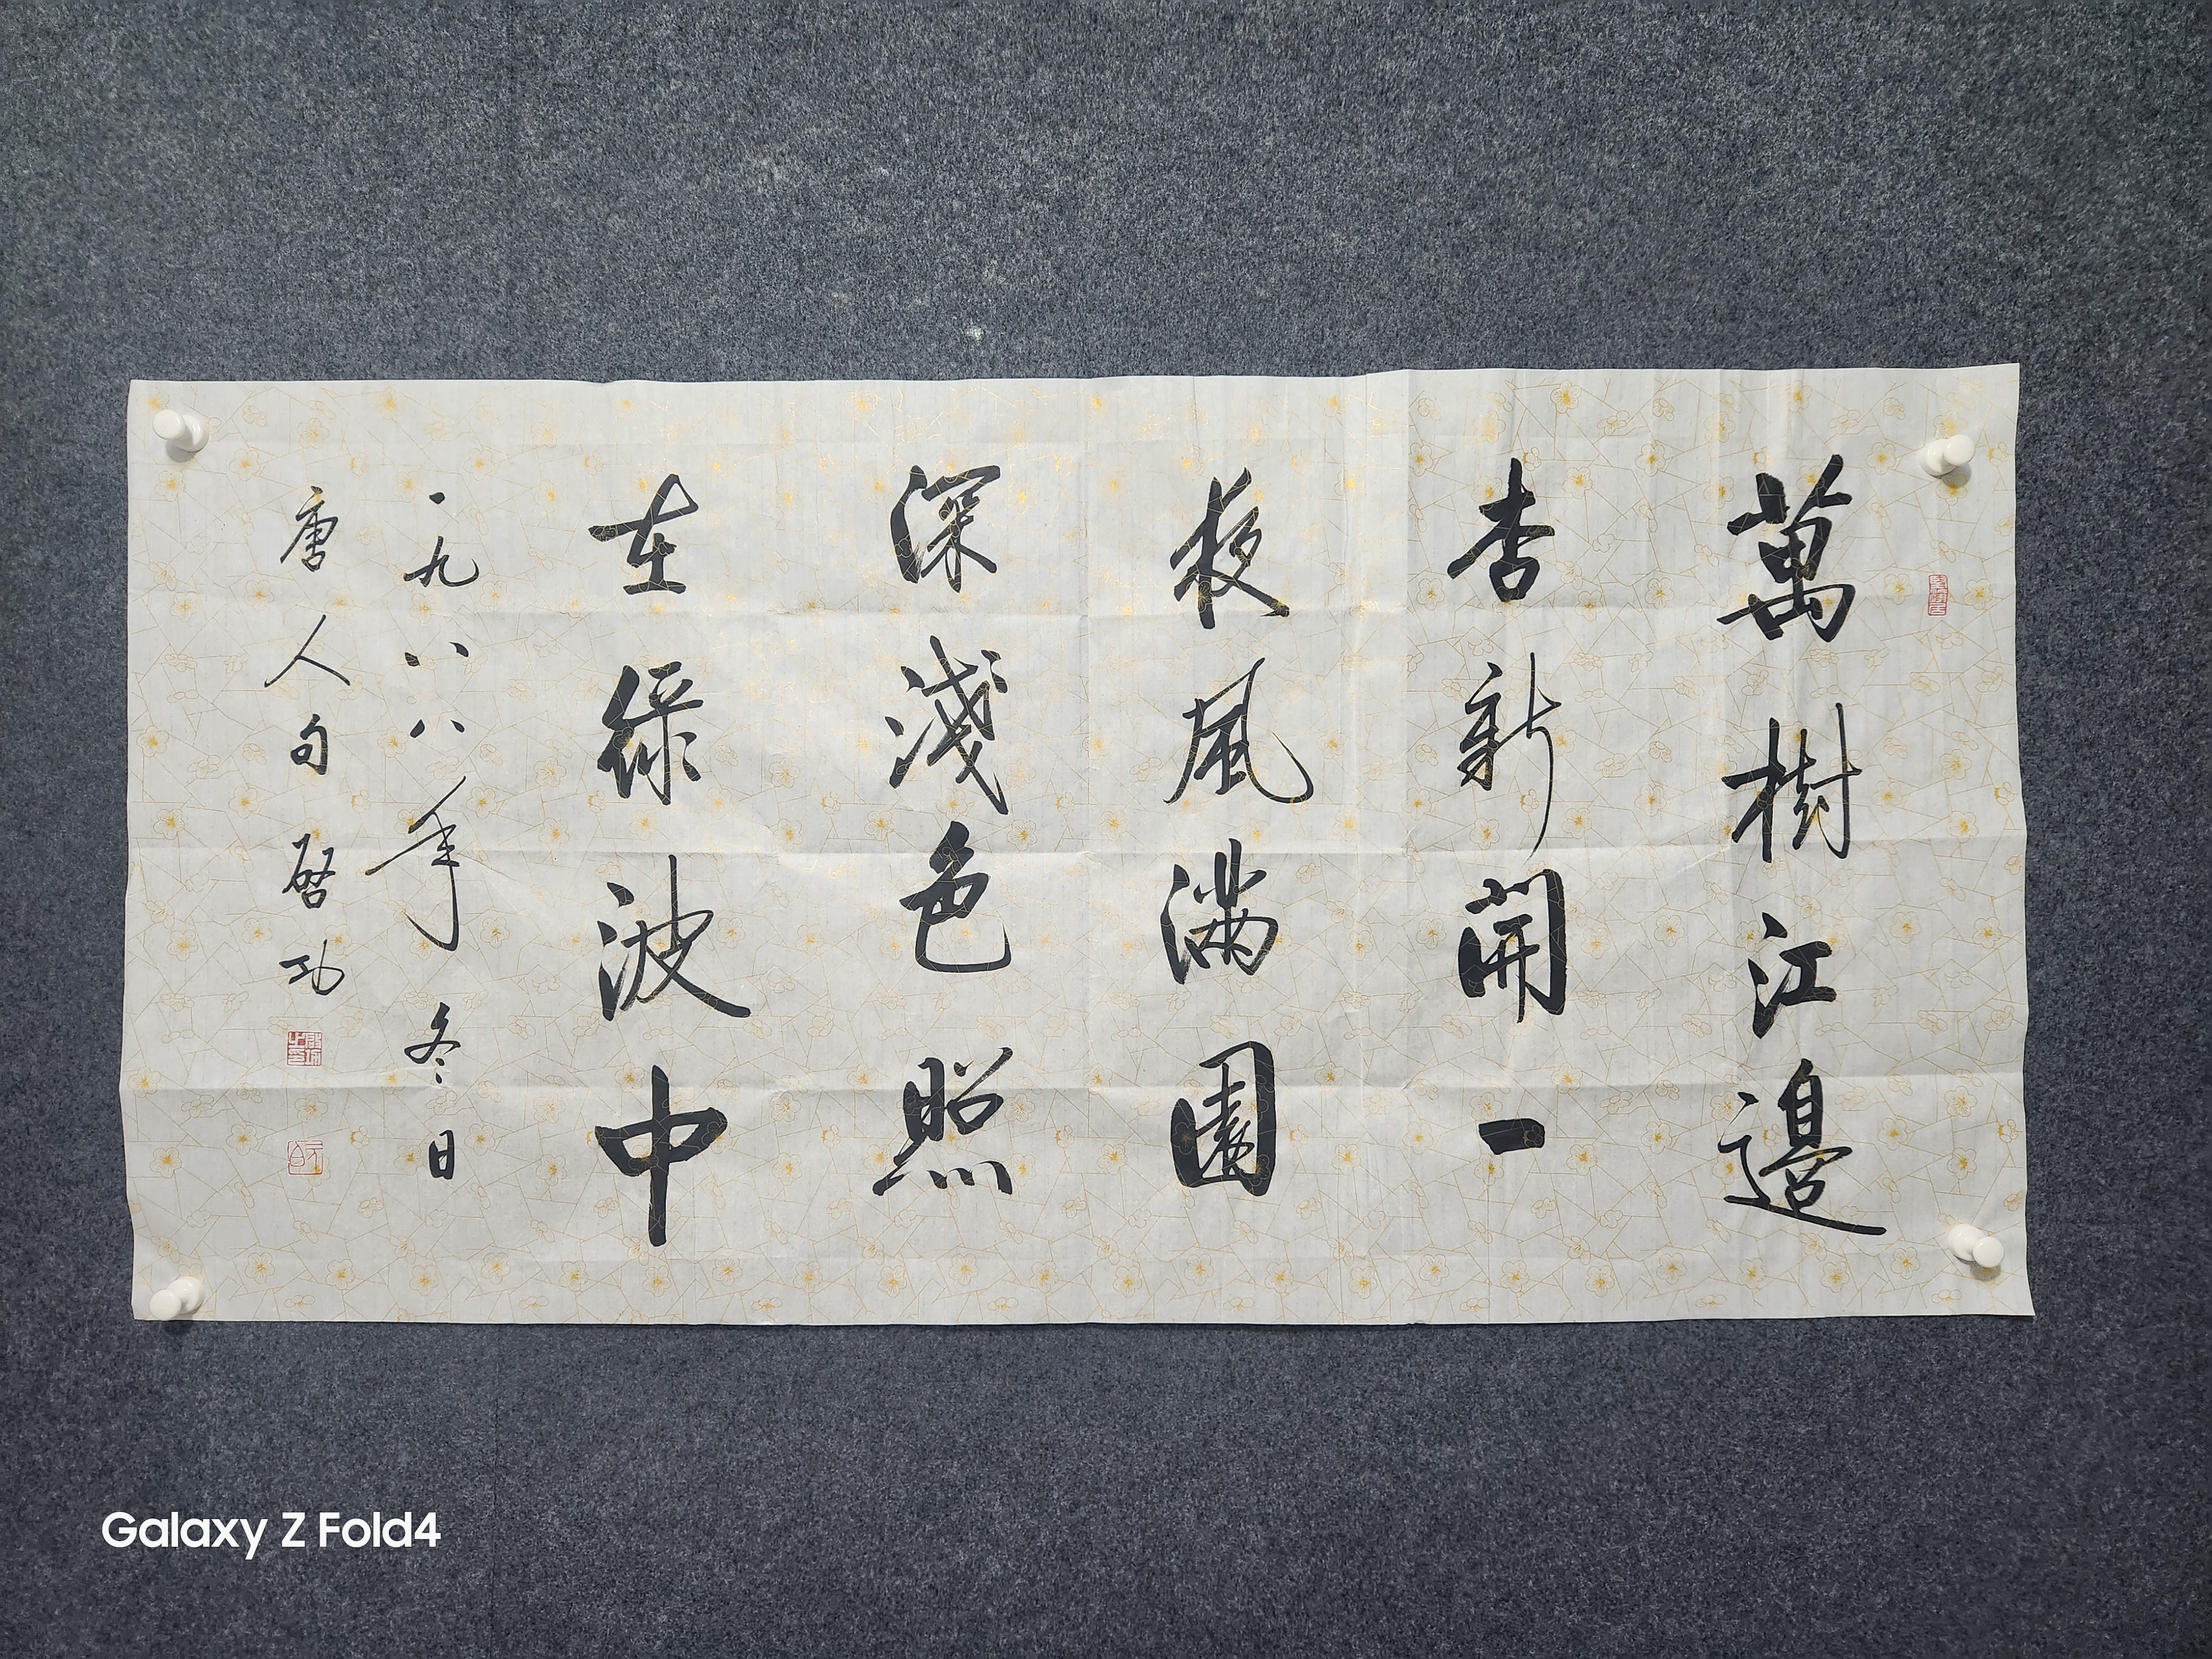 萬樹江邊
杏新開一
夜風滿園
深淺色照
在綠波中
一九八八年冬日
唐人句啓功
Galaxy Z Fold4